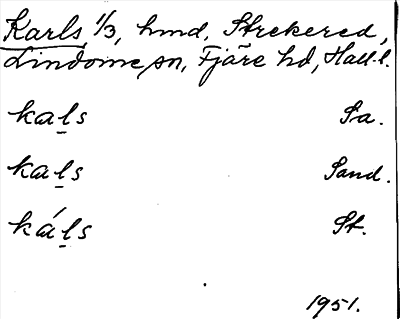 Karls, 1/3, hmd. Strekered,
Lindome sn, Fjäre hd, Hall. l.
kaḻs Sa.
kaḻs Sand.
káḻs St.
1951.